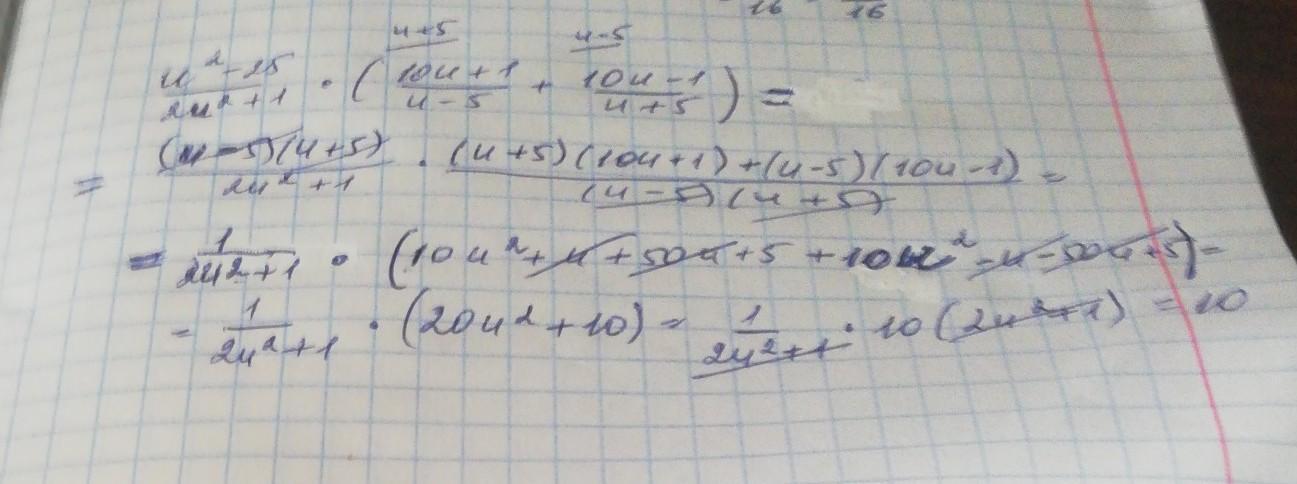 16 16
u+5 u-5
u²-25/2u²+1 · (10u+1/u-5 + 10u-1/u+5) =
= (u-5)(u+5)/2u²+1 · (u+5)(10u+1)+(u-5)(10u-1)/(u-5)(u+5) =
= 1/2u²+1 · (10u²+u+50u+5+10u²-u-50u+5) =
= 1/2u²+1 · (20u²+10) = 1/2u²+1 · 10(2u²+1) = 10